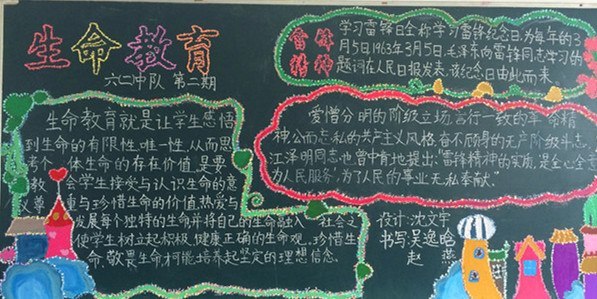 生命教育
六二中队 第二期
生命教育就是让学生感悟
到生命的有限性、唯一性,从而思
考个体生命的存在价值,是要
教会学生接受与认识生命的意
义,尊重与珍惜生命的价值,热爱与
发展每个独特的生命并将自己的生命融入社会之
使学生树立起积极、健康、正确的生命观,珍惜生
命、敬畏生命才能培养起坚定的理想信念。
雷锋
精神
学习雷锋日全称学习雷锋纪念日,为每年的3
月5日,1963年3月5日,毛泽东向雷锋同志学习的
题词在人民日报发表,该纪念日由此而来。
爱憎分明的阶级立场、言行一致的革命精
神、公而忘私的共产主义风格、奋不顾身的无产阶级斗志。
江泽明同志也曾中肯地提出:"雷锋精神的实质,是全心全意
为人民服务",为了人民的事业无私奉献。"
设计:沈文宇
书写:吴逸晗
赵燕